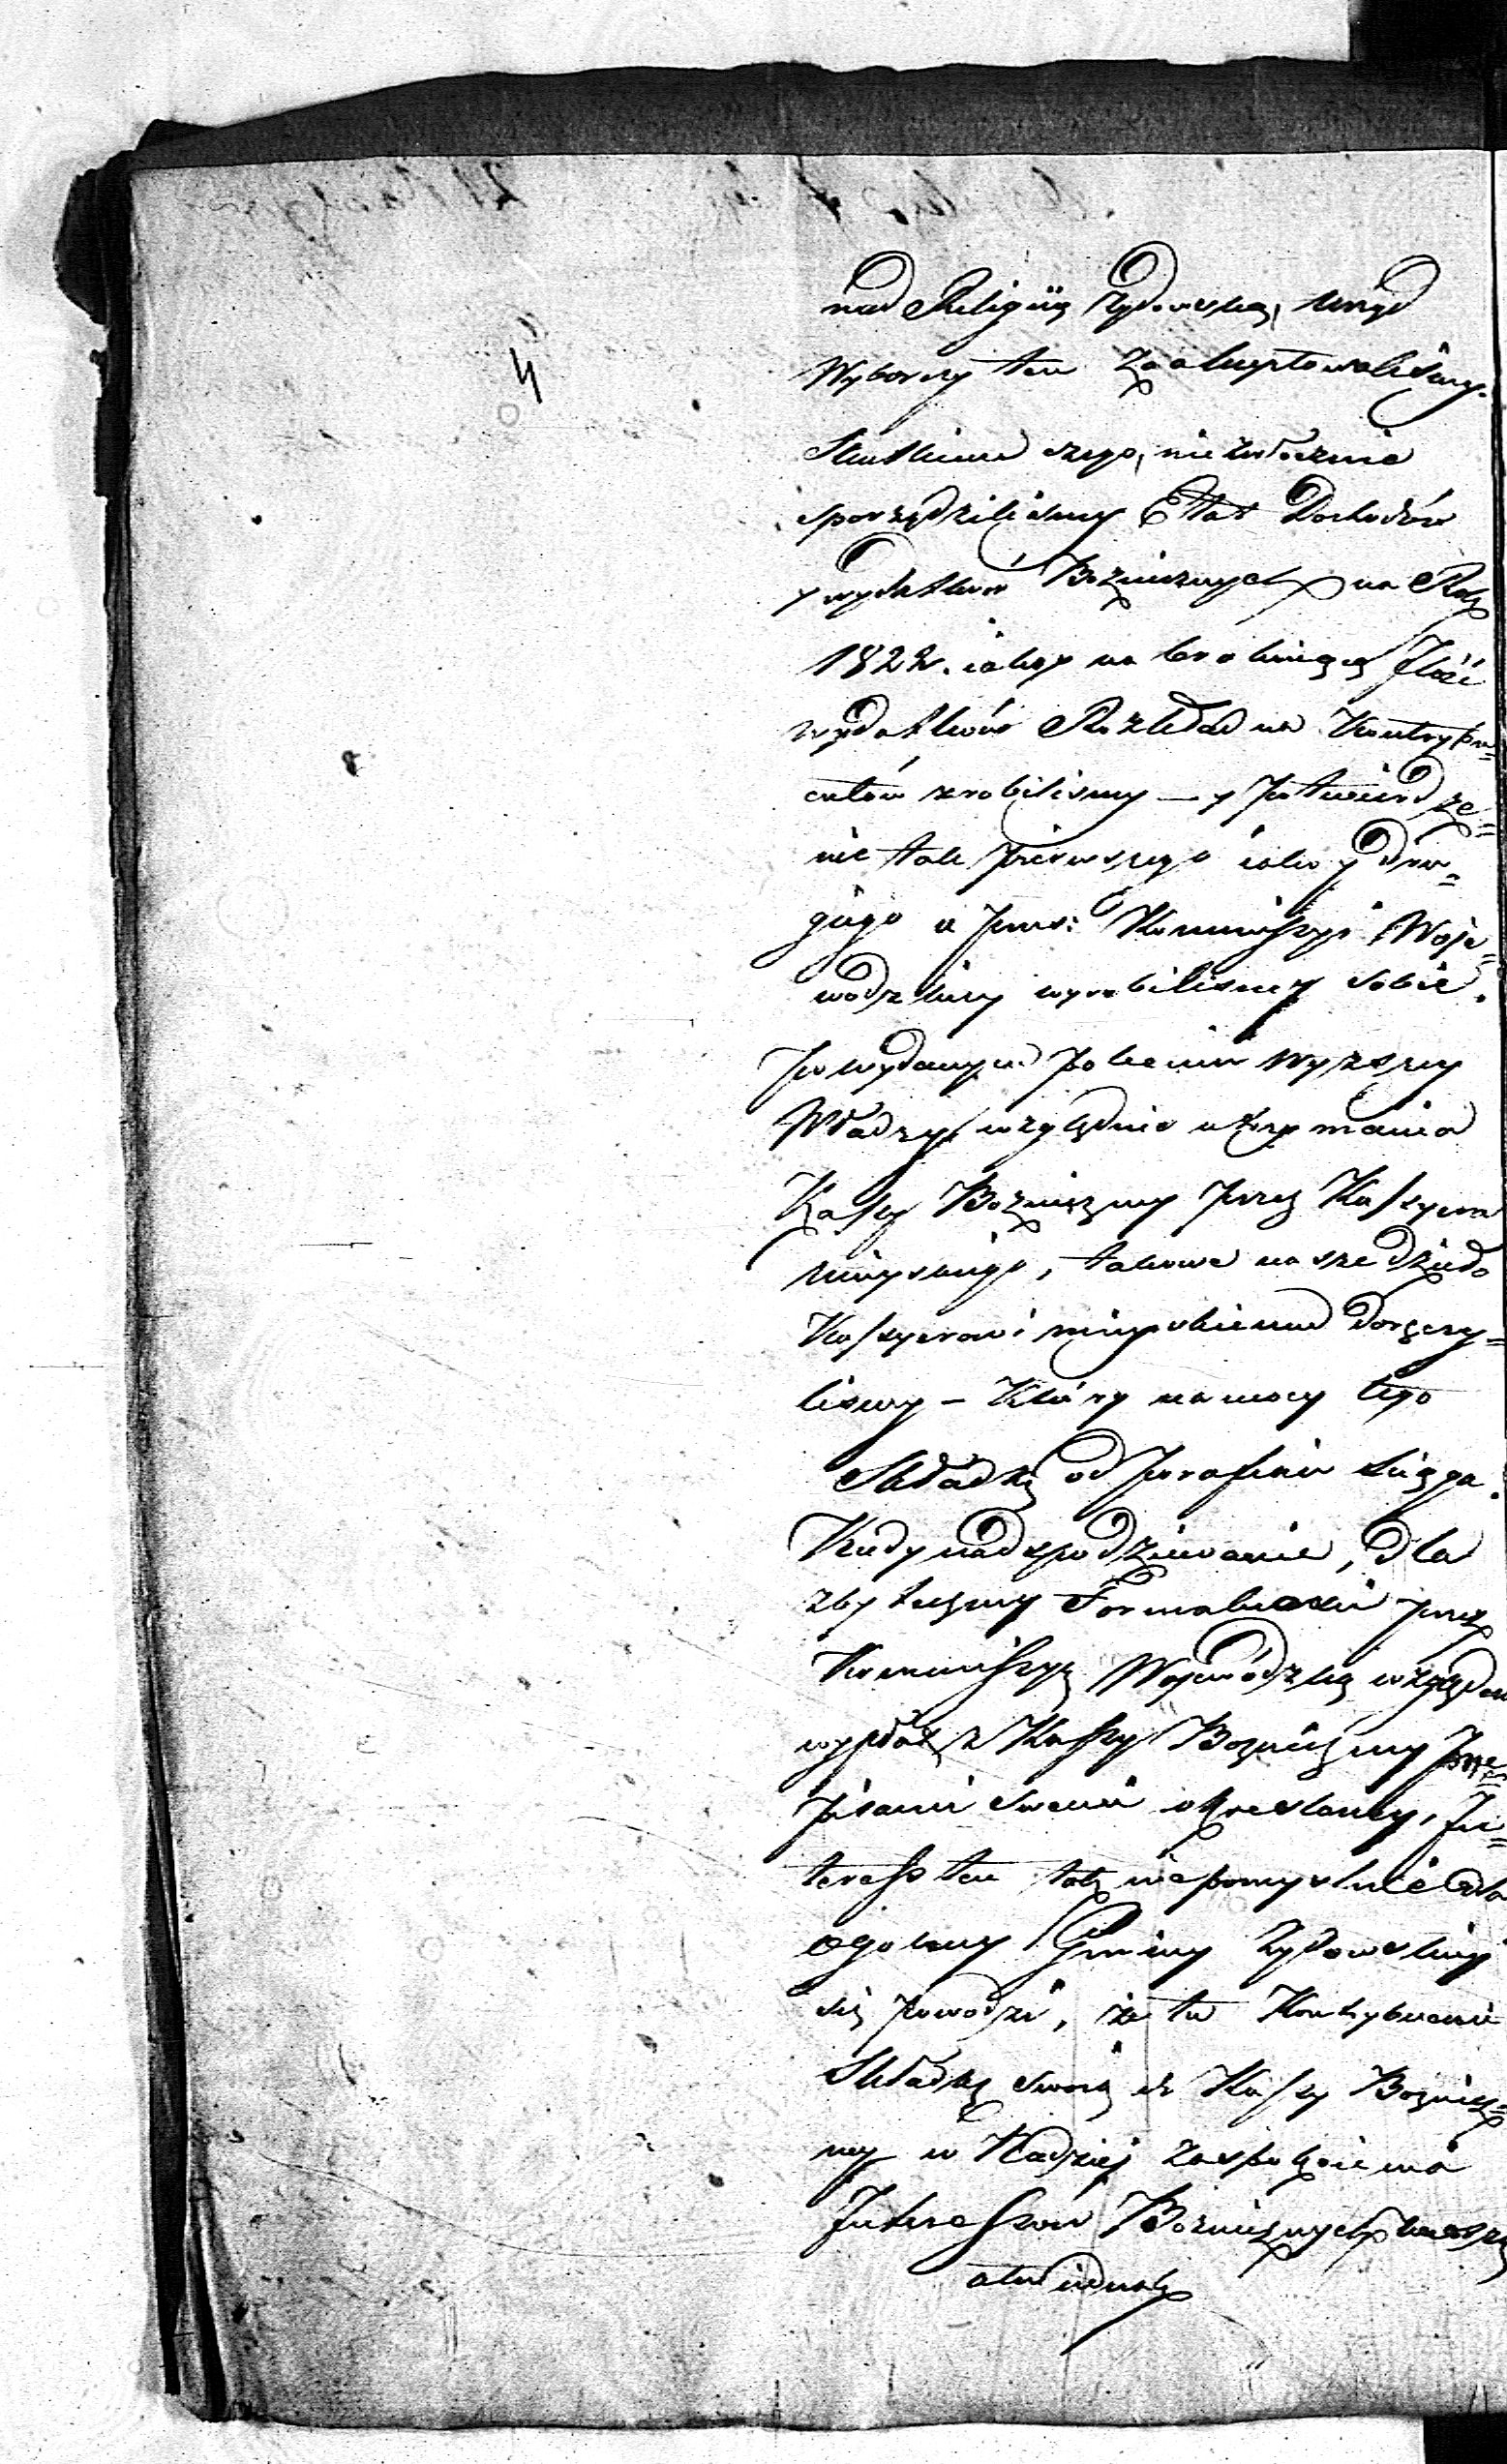 4
nad Religiią Żydowską, urząd
Wyborczy ten zaakceptowaliśmy.
Skutkiem czego, niezwłocznie
sporządziliśmy Etat Dochodów
y wydatków Bożniczych na Rok
1822. iako y na brakuiącą Ilość
wydatków Rozkład na Kontrybu=
entów zrobilismy — y potwierdze=
nie tak pierwszego iako y dru=
giego u Prześ: Kommissyi Woje=
wodzkiey wyrobilismy sobie.
Po wydanym poleceniu wyższey
Władzy względnie utrzymania
Kassy Bożniczney przez Kassyera
mieyskiego, takowe nasze dzieło
Kassyerowi mieyskiemu doręczy=
lismy – Który na mocy tego
Składkę od Parafian ściąga.
Kiedy nadspodziewanie, dla
zbyteczney Formalności przez
Kommissyę Wojewódzką względem
wypłat z Kassy Bożniczney prze=
pisami swemi okresloney, In=
teress ten tak niepomyslnie dla
ogolney Gminy Żydowskiey
się powodzi, że tu Kontrybuenci
Składkę swoię do Kassy Bożnicz=
ney w Nadziei zaspokoienia
Interessow Bożnicznych wnoszą
a tu iednak